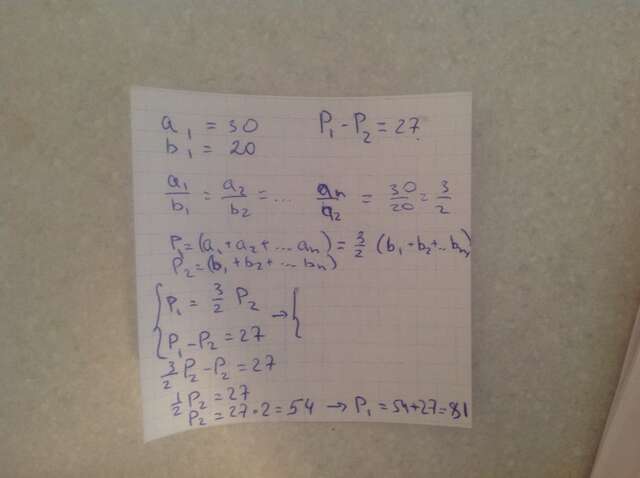 a₁ = 30 P₁ - P₂ = 27
b₁ = 20
a₁/b₁ = a₂/b₂ = ... aₙ/a₂ = 30/20 = 3/2
P₁ = (a₁ + a₂ + ... aₙ) = 3/2 (b₁ + b₂ + ... bₙ)
P₂ = (b₁ + b₂ + ... bₙ)
{ P₁ = 3/2 P₂ → {
P₁ - P₂ = 27
3/2 P₂ - P₂ = 27
1/2 P₂ = 27
P₂ = 27 • 2 = 54 → P₁ = 54 + 27 = 81